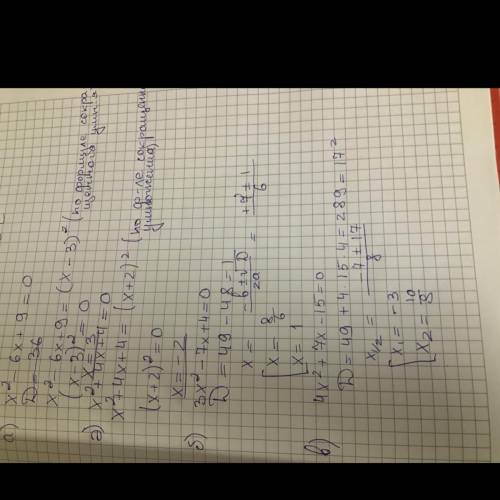 а) x² - 6x + 9 = 0
D = 36
x² - 6x + 9 = (x - 3)² (по формуле сокра-
щенного
(x - 3)² = 0
x = 3
д) x² + 4x + 4 = 0
x² + 4x + 4 = (x + 2)² (по ф-ле сокращенн
умножения)
(x + 2)² = 0
x = -2
б) 3x² - 7x + 4 = 0
D = 49 - 48 = 1
x = -b ± √D / 2a = +7 ± 1 / 6
[ x = 8/6
x = 1
в) 4x² + 7x - 15 = 0
D = 49 + 4·15·4 = 289 = 17²
x1/2 = -7 ± 17 / 8
[ x₁ = -3
x₂ = 10/8